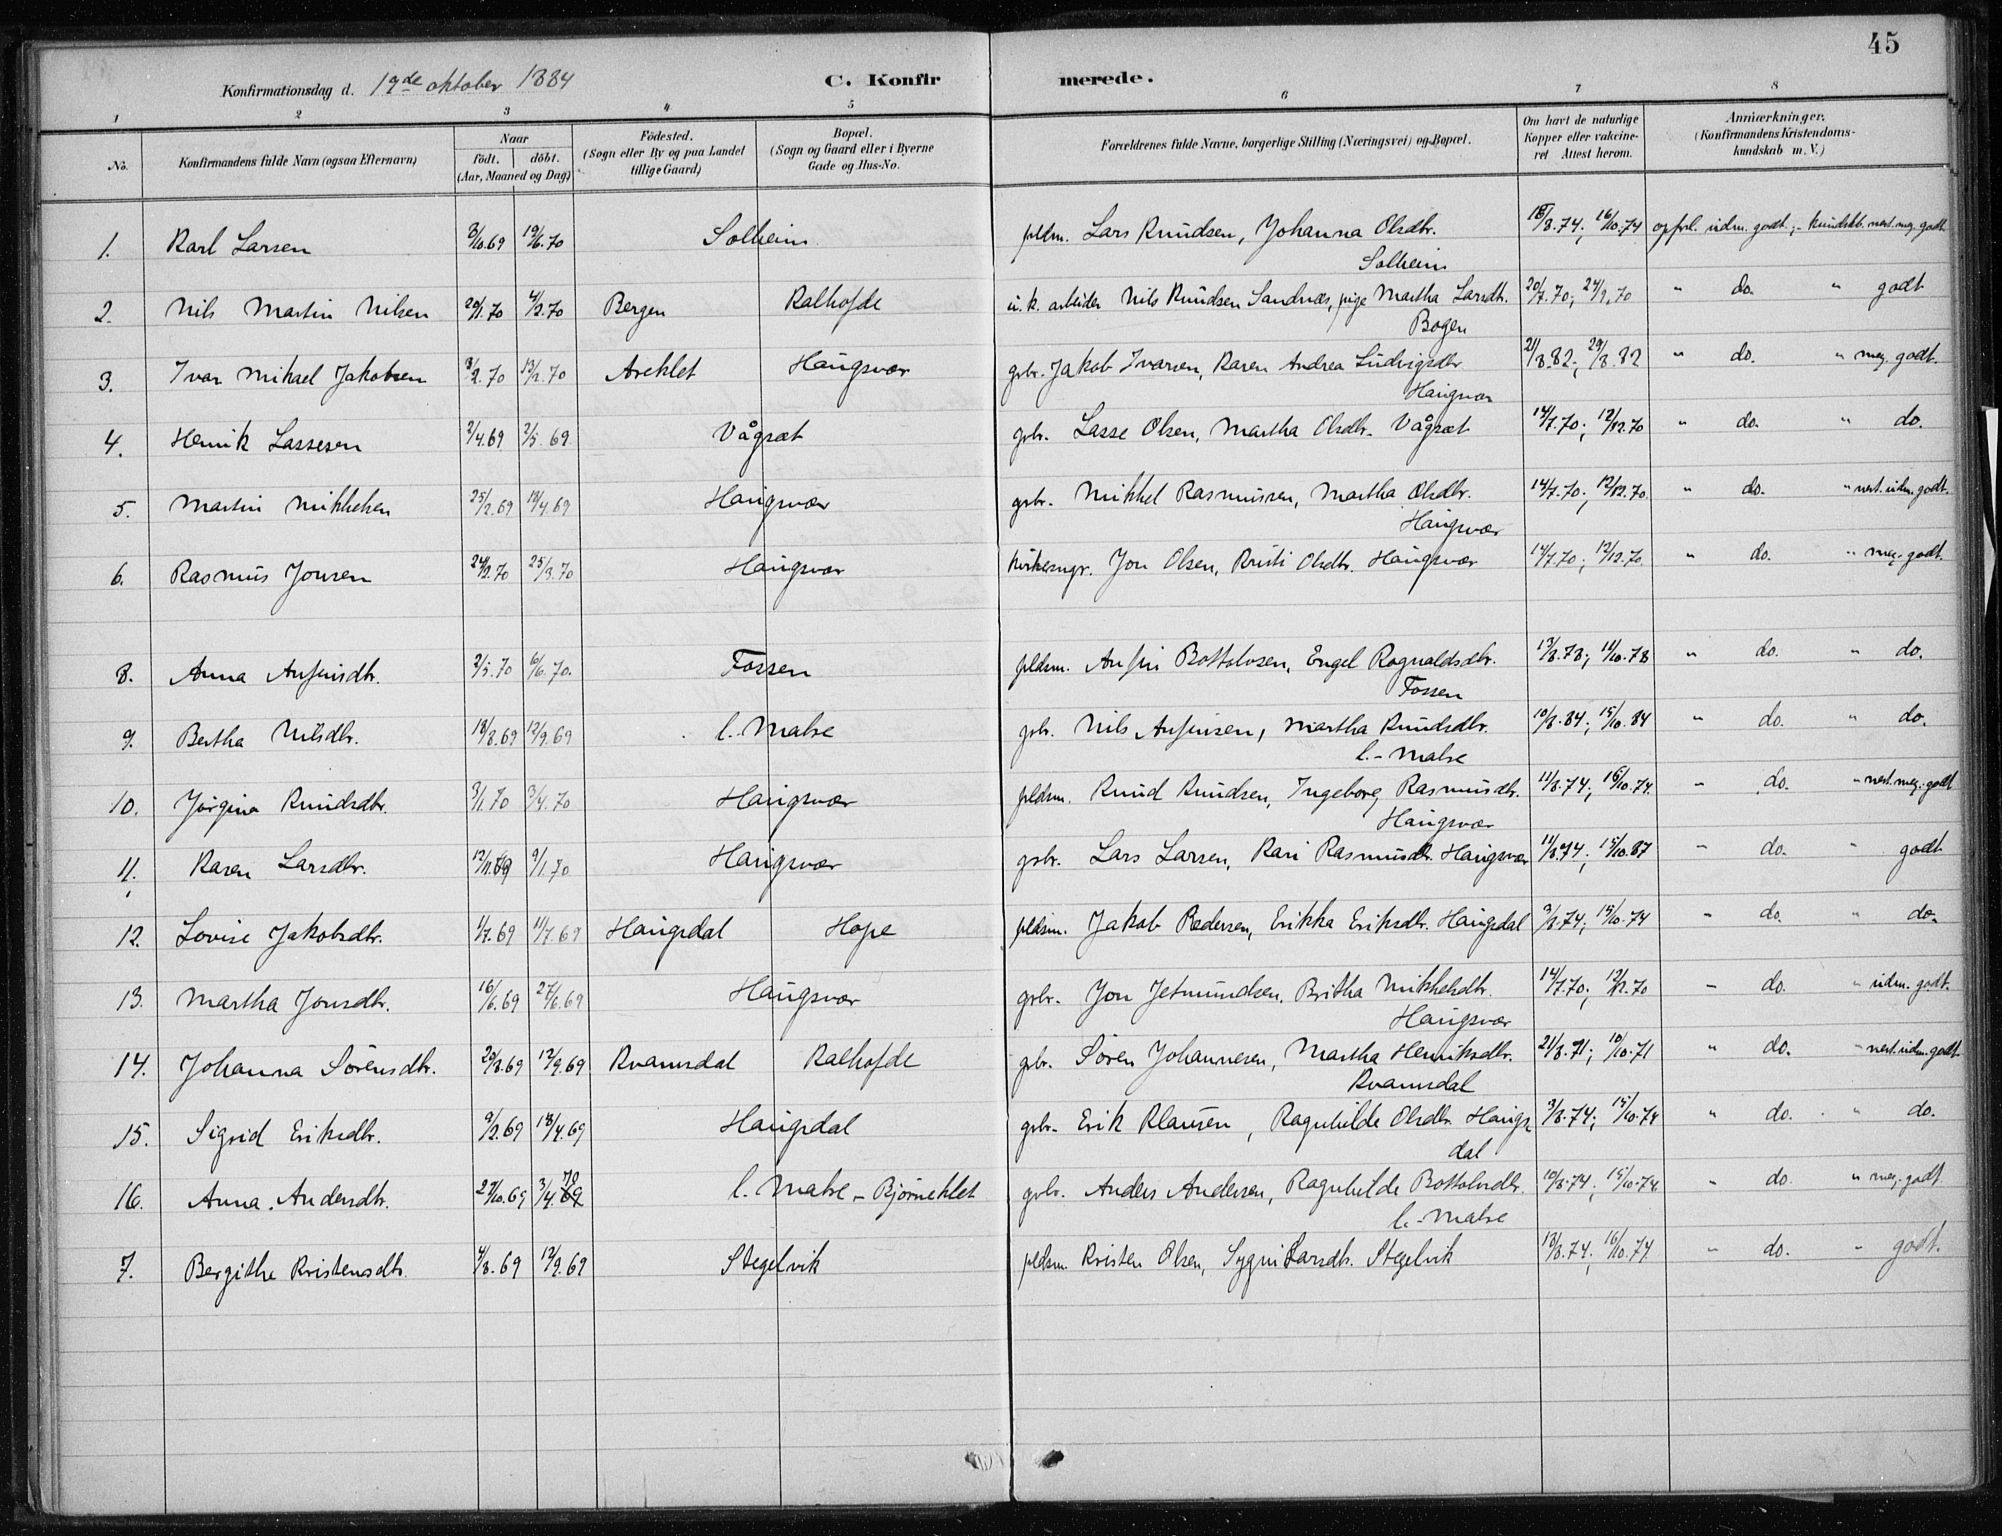 45
Konfirmationsdag d. 19de oktober 1884 C. Konfir merede.
1 2 3 4 5 6 7 8
No. Konfirmandens fulde Navn (ogsaa Efternavn) Naar født. døbt. (Aar, Maaned og Dag) Fødested. (Sogn eller By og paa Landet tillige Gaard) Bopæl. (Sogn og Gaard eller i Byerne Gade og Hus-No. Forældrenes fulde Navne, borgerlige Stilling (Næringsvei) og Bopæl. Om havt de naturlige Kopper eller vakcineret Attest herom. Anmærkninger. (Konfirmandens Kristendomskundskab m. V.)
1. Karl Larsen 3/10.69 19/6.70 Solheim pldsm. Lars Knudsen, Johanna Olsdtr. 18/8.74; 16/10.74 opførl. udm. godt; - kundskb. nest. meg. godt
Solheim
2. Nils Martin Nilsen 20/1.70 4/2.70 Bergen Kalhofde u. k. arbeider Nils Knudsen Sandnæs, pige Martha Larsdtr. 20/7.70; 24/9.70 " do. " godt
Bogen
3. Ivar Mikael Jakobsen 3/2.70 13/2.70 Areklet Haugsvær gbr. Jakob Ivarsen, Karen Andrea Ludvigsdtr 21/8.82; 29/8.82 " do. " meg. godt.
Haugsvær
4. Henrik Lassesen 2/4.69 2/5.69 Vågsæt gbr. Lasse Olsen, Martha Olsdtr. Vågsæt 14/7.70; 12/12.70 " do. " do.
5. Martin Mikkelsen 25/2.69 18/4.69 Haugsvær gbr. Mikkel Rasmussen, Martha Olsdtr. 14/7.70; 12/12.70 " do. " nest. udm. godt.
Haugsvær
6. Rasmus Jonsen 24/2.70 25/3.70 Haugsvær kirkesngr. Jon Olsen, Kristi Olsdtr. Haugsvær 14/7.70; 12/12.70 " do. " meg. godt.
8. Anna Anfinsdtr. 2/5.70 6/6.70. Fossen pldsm. Anfin Bottolvsen, Engel Rognaldsdtr. 13/8.78; 11/10.78 " do. " do.
Fossen
9. Bertha Nilsdtr. 18/8.69 12/9.69 l. Matre gbr. Nils Anfinsen, Martha Knudsdtr. 10/8.84; 15/10.84 " do. " do.
l. - Matre
10. Jørgine Knudsdtr. 3/1.70 3/4.70 Haugsvær pldsm. Knud Knudsen, Ingeborg Rasmusdtr. 11/8.74; 16/10.74. " do. " nest. meg. godt
Haugsvær
11. Karen Larsdtr. 12/11.69 9/1.70 Haugsvær gbr. Lars Larsen, Kari Rasmusdtr. Haugsvær 11/8.74; 15/10.87 " do. " godt
12. Lovise Jakobsdtr. 1/7.69 11/7.69 Haugsdal Hope pldsm. Jakob Pedersen, Erikka Eriksdtr. Haugsdal 3/8.74; 15/10.74 " do. " do.
13. Martha Jonsdtr. 16/6.69 27/6.69 Haugsvær gbr. Jon Jetmundsen, Britha Mikkelsdtr. 14/7.70; 12/12.70 " do. " udm. godt.
Haugsvær
14. Johanna Sørensdtr. 29/8.69 12/9.69 Kvamsdal Kalhofde gbr. Søren Johannesen, Martha Henriksdtr. 21/8.71; 10/10.71 " do. " nest. udm. godt.
Kvamsdal
15. Sigrid Eriksdtr. 9/2.69 18/4.69 Haugsdal gbr. Erik Klausen, Ragnhilde Olsdtr. Haugs 3/8.74; 15/10.74 " do. " do.
dal
16. Anna Andersdtr. 27/10.69 3/4.69 70 l. Matre - Bjørneklet gbr. Anders Andersen, Ragnhilde Bottolvsdtr. 10/8.74; 15/10.74. " do. " meg. godt.
l. - Matre
7. Bergithe Kristensdtr. 4/8.69 12/9.69 Stegelvik pldsm. Kristen Olsen, Sygni Larsdtr. Stegelvik 13/8.74; 16/10.74 " do. " godt.